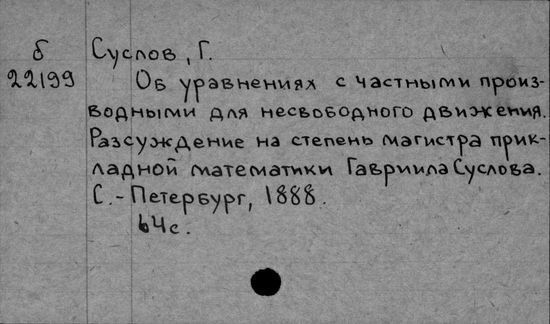 б Суслов, Г.
22199 Об уравнениях с частными произ-
водными для несвободного движения.
Разсуждение на степень магистра прик-
ладной математики Гавриила Суслова.
С.-Петербург, 1888.
64с.